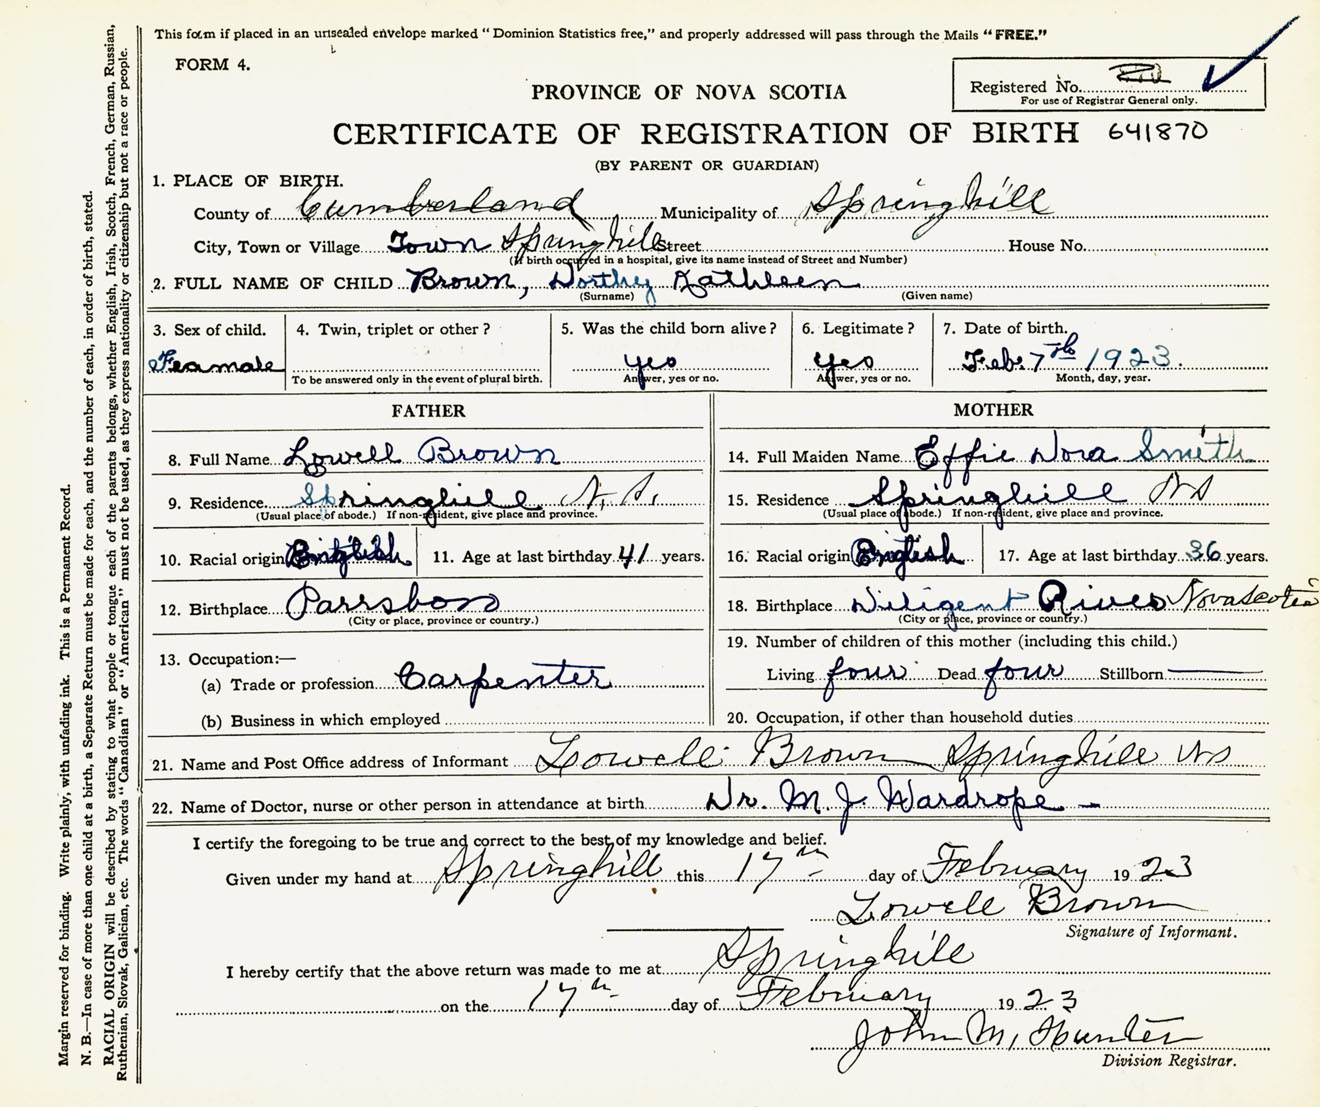 This form if placed in an unsealed envelope marked "Dominion Statistics free," and properly addressed will pass through the Mails "FREE."
FORM 4.
Registered No.
For use of Registrar General only.
PROVINCE OF NOVA SCOTIA
CERTIFICATE OF REGISTRATION OF BIRTH 641870
(BY PARENT OR GUARDIAN)
1. PLACE OF BIRTH.
County of Cumberland Municipality of Springhill
City, Town or Village Town Springhill Street House No.
(If birth occurred in a hospital, give its name instead of Street and Number)
2. FULL NAME OF CHILD Brown, Dorthy Kathleen
(Surname) (Given name)
3. Sex of child. 4. Twin, triplet or other? 5. Was the child born alive? 6. Legitimate? 7. Date of birth.
Feamale yes yes Feb. 7th 1923.
To be answered only in the event of plural birth. Answer, yes or no. Answer, yes or no. Month, day, year.
FATHER MOTHER
8. Full Name Lowell Brown 14. Full Maiden Name Effie Nora Smith
9. Residence Springhill N.S. 15. Residence Springhill NS
(Usual place of abode.) If non-resident, give place and province. (Usual place of abode.) If non-resident, give place and province.
10. Racial origin English 11. Age at last birthday 41 years. 16. Racial origin English 17. Age at last birthday 36 years.
12. Birthplace Parrsboro 18. Birthplace Diligent River Nova Scotia
(City or place, province or country.) (City or place, province or country.)
13. Occupation:— 19. Number of children of this mother (including this child.)
(a) Trade or profession Carpenter Living four Dead four Stillborn —
(b) Business in which employed 20. Occupation, if other than household duties
21. Name and Post Office address of Informant Lowell Brown Springhill NS
22. Name of Doctor, nurse or other person in attendance at birth Dr. M. J. Wardrope –
I certify the foregoing to be true and correct to the best of my knowledge and belief.
Given under my hand at Springhill this 17th day of February 1923
Lowell Brown
Signature of Informant.
I hereby certify that the above return was made to me at Springhill
on the 17th day of February 1923
John M. Hunter
Division Registrar.
Margin reserved for binding. Write plainly, with unfading ink. This is a Permanent Record.
N. B.—In case of more than one child at a birth, a Separate Return must be made for each, and the number of each, in order of birth, stated.
RACIAL ORIGIN will be described by stating to what people or tongue each of the parents belongs, whether English, Irish, Scotch, French, German, Russian,
Ruthenian, Slovak, Galician, etc. The words "Canadian" or "American" must not be used, as they express nationality or citizenship but not a race or people.